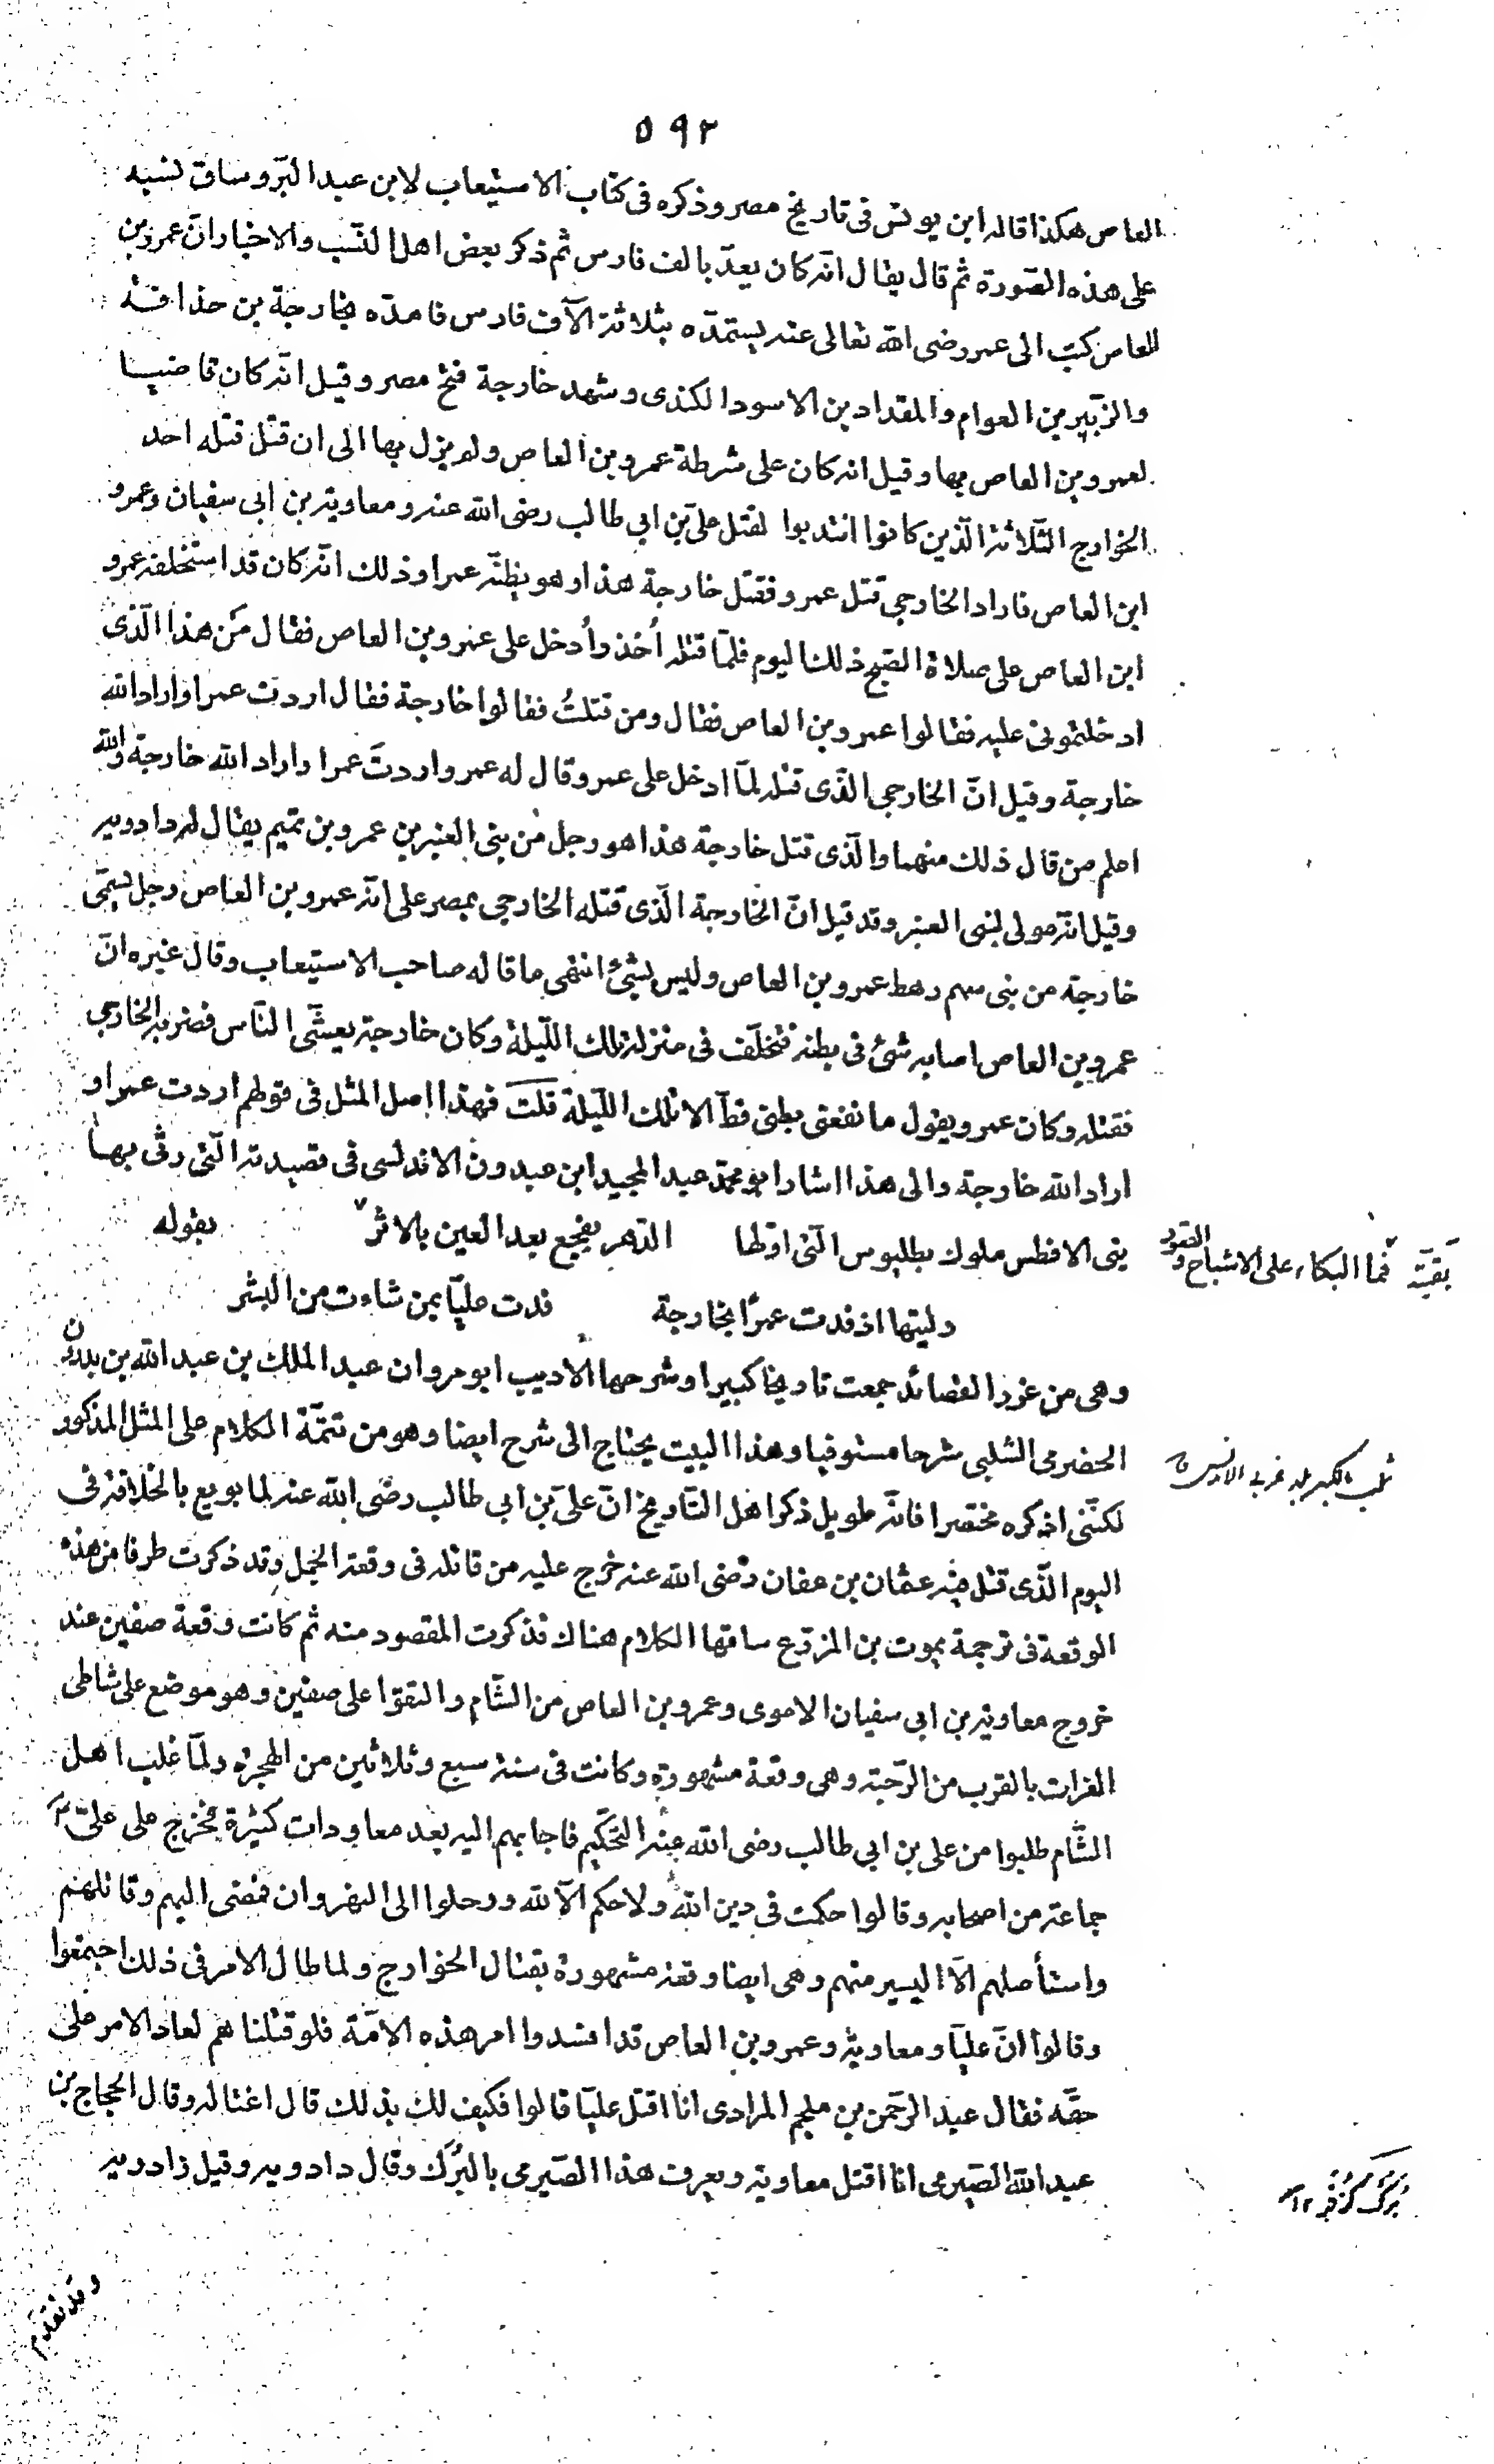 ٥٩٢
العاص هكذا قاله ابن يونس فى تاريخ مصر وذكره فى كتاب الاستيعاب لابن عبد البرّ وساق نسبه
على هذه الصّورة ثم قال يقال انّه كان يعدّ بالف فارس ثم ذكر بعض اهل النّسب والاخبار انّ عمرو بن
العاص كتب الى عمر رضى الله تعالى عنه يستمدّه بثلاثة الآف فارس فامدّه بخارجة بن حذافة
والزّبير بن العوام والمقداد بن الاسود الكندى وشهد خارجة فتح مصر وقيل انّه كان قاضيا
لعمرو بن العاص بها وقيل انه كان على شرطة عمرو بن العاص ولم يزل بها الى ان قتل قتله احد
الخوارج الثّلاثة الّذين كانوا انتدبوا لقتل علىّ بن ابى طالب رضى الله عنه ومعاوية بن ابى سفيان وعمرو
ابن العاص فاراد الخارجى قتل عمرو فقتل خارجة هذا وهو يظنّه عمرا وذلك انّه كان قد استخلفه عمرو
ابن العاص على صلاة الصّبح ذلك اليوم فلمّا قتله اُخذ واُدخل على عمرو بن العاص فقال مَن هذا الّذى
ادخلتمونى عليه فقالوا عمرو بن العاص فقال ومن قتلتُ فقالوا خارجة فقال اردت عمرا واراد الله
خارجة وقيل انّ الخارجى الّذى قتله لمّا ادخل على عمرو قال له عمرو اردتَ عمرا واراد الله خارجة والله
اعلم من قال ذلك منهما والّذى قتل خارجة هذا هو رجل من بنى العنبر بن عمرو بن تميم يقال له دادويه
وقيل انّه مولى لبنى العنبر وقد قيل انّ الخارجة الّذى قتله الخارجى بمصر على انّه عمرو بن العاص رجل يسمّى
خارجة من بنى سهم رهط عمرو بن العاص وليس بشئ انتهى ما قاله صاحب الاستيعاب وقال غيره انّ
عمرو بن العاص اصابه شئ فى بطنه فتخلّف فى منزله تلك اللّيلة وكان خارجة يعشّى النّاس فضربه الخارجى
فقتله وكان عمرو يقول ما نفعنى بطنى قطّ الا تلك اللّيلة قلت فهذا اصل المثل فى قولهم اردت عمرا و
اراد الله خارجة والى هذا اشار ابو محمّد عبد المجيد ابن عبدون الاندلسى فى قصيدته الّتى رثّى بها
بنى الافطس ملوك بطليوس الّتى اوّلها الدّهر يفجع بعد العين بالاثر بقوله
بقيّة فما البكاء على الاشباح والصّور
وليتها اذ فدت عمرًا بخارجة فدت عليّا بمن شاءت من البشر
وهى من غرر القصائد جمعت تاريخا كبيرا وشرحها الاديب ابو مروان عبد الملك بن عبد الله بن بدرون
الحضرمى الشلبى شرحا مستوفيا وهذا البيت يحتاج الى شرح ايضا وهو من تتمّة الكلام على المثل المذكور
شلب بالكسر بلد غربى الاندلس
لكنّنى اذكره مختصرا فانّه طويل ذكر اهل التّاريخ انّ علىّ بن ابى طالب رضى الله عنه لما بويع بالخلافة فى
اليوم الّذى قتل فيه عثمان بن عفان رضى الله عنه خرج عليه من قاتله فى وقعة الجمل وقد ذكرت طرفا من هذه
الوقعة فى ترجمة يموت بن المزرّع ساقها الكلام هناك فذكرت المقصود منه ثم كانت وقعة صفين عند
خروج معاوية بن ابى سفيان الاموى وعمرو بن العاص من الشّام والتقوا على صفين وهو موضع على شاطئ
الفرات بالقرب من الرّحبة وهى وقعة مشهورة وكانت فى سنة سبع وثلاثين من الهجرة ولمّا غلب اهل
الشّام طلبوا من على بن ابى طالب رضى الله عنه التّحكيم فاجابهم اليه بعد معاودات كثيرة فخرج على علىّ
جماعة من اصحابه وقالوا حكمت فى دين الله ولا حكم الّا لله ورحلوا الى النهروان فمضى اليهم وقاتلهم
واستأصلهم الّا اليسير منهم وهى ايضا وقعة مشهورة بقتال الخوارج ولما طال الامر فى ذلك اجتمعوا
وقالوا انّ عليّا ومعاوية وعمرو بن العاص قد افسدوا امر هذه الامّة فلو قتلناهم لعاد الامر على
حقّه فقال عبد الرّحمن بن ملجم المرادى انا اقتل عليّا قالوا فكيف لك بذلك قال اغتاله وقال الحجاج بن
عبد الله الصّيرمى انا اقتل معاوية ويعرف هذا الصّيرمى بالبُرَك وقال دادويه وقيل زادويه
بُرَك كزُفَر ١٢
وقد تقدم